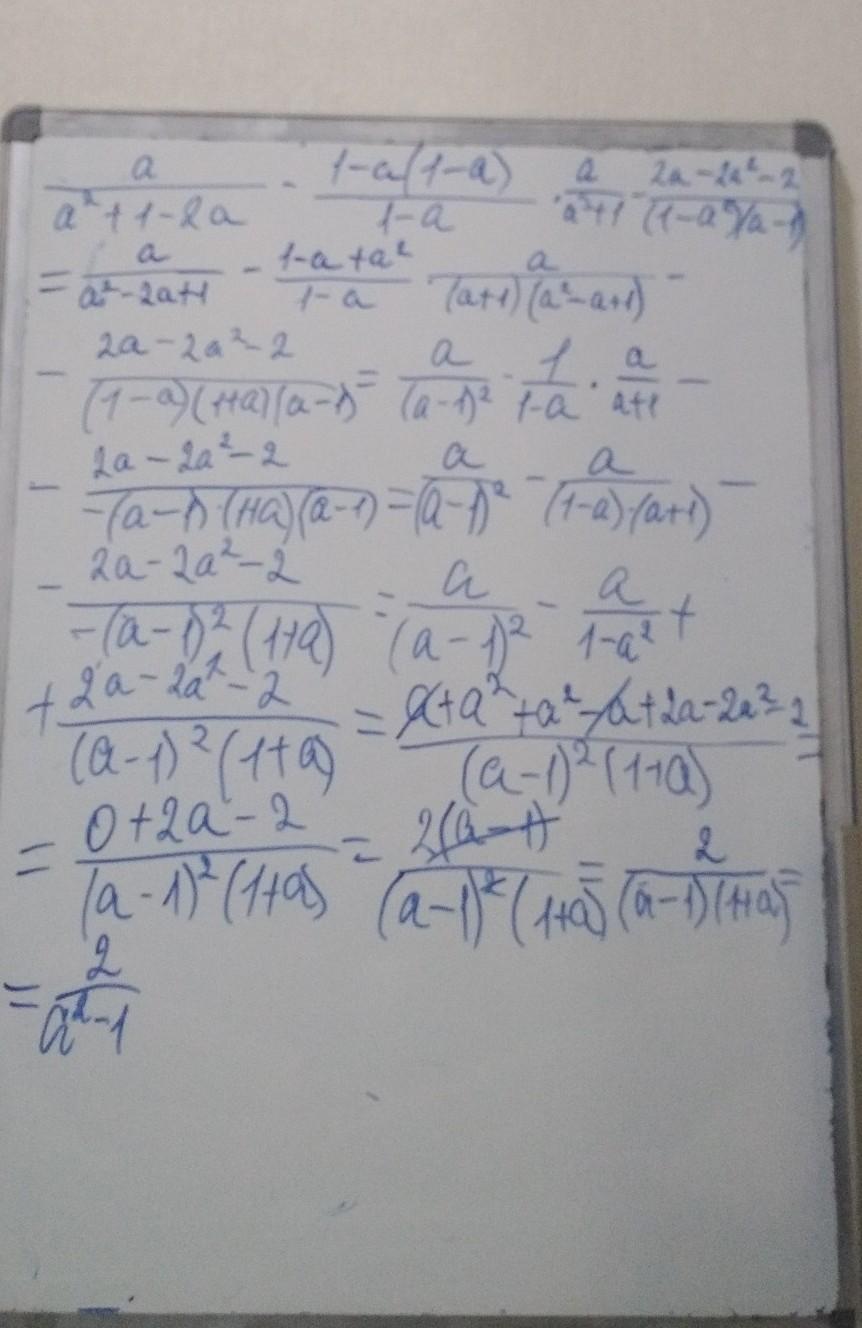 a/(a²+1-2a) - (1-a(1-a))/(1-a) · a/(a³+1) - (2a-2a²-2)/((1-a²)(a-1))
= a/(a²-2a+1) - (1-a+a²)/(1-a) · a/((a+1)(a²-a+1)) -
- (2a-2a²-2)/((1-a)(1+a)(a-1)) = a/(a-1)² - 1/(1-a) · a/(a+1) -
- (2a-2a²-2)/(-(a-1)·(1+a)(a-1)) = a/(a-1)² - a/((1-a)·(a+1)) -
- (2a-2a²-2)/(-(a-1)²(1+a)) = a/(a-1)² - a/(1-a²) +
+ (2a-2a²-2)/((a-1)²(1+a)) = (a+a²+a²-a+2a-2a²-2)/((a-1)²(1+a)) =
= (0+2a-2)/((a-1)²(1+a)) = 2(a-1)/((a-1)²(1+a)) = 2/((a-1)(1+a)) =
= 2/(a²-1)